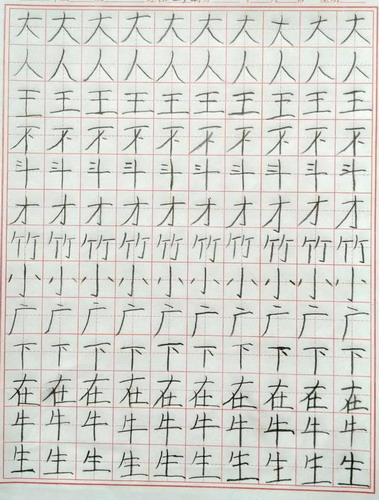 大大大大大大大大大大
人人人人人人人人人人
王王王王王王王王王王
不不不不不不不不不不
斗斗斗斗斗斗斗斗斗斗
才才才才才才才才才才
竹竹竹竹竹竹竹竹竹竹
小小小小小小小小小小
广广广广广广广广广广
下下下下下下下下下下
在在在在在在在在在在
牛牛牛牛牛牛牛牛牛牛
生生生生生生生生生生